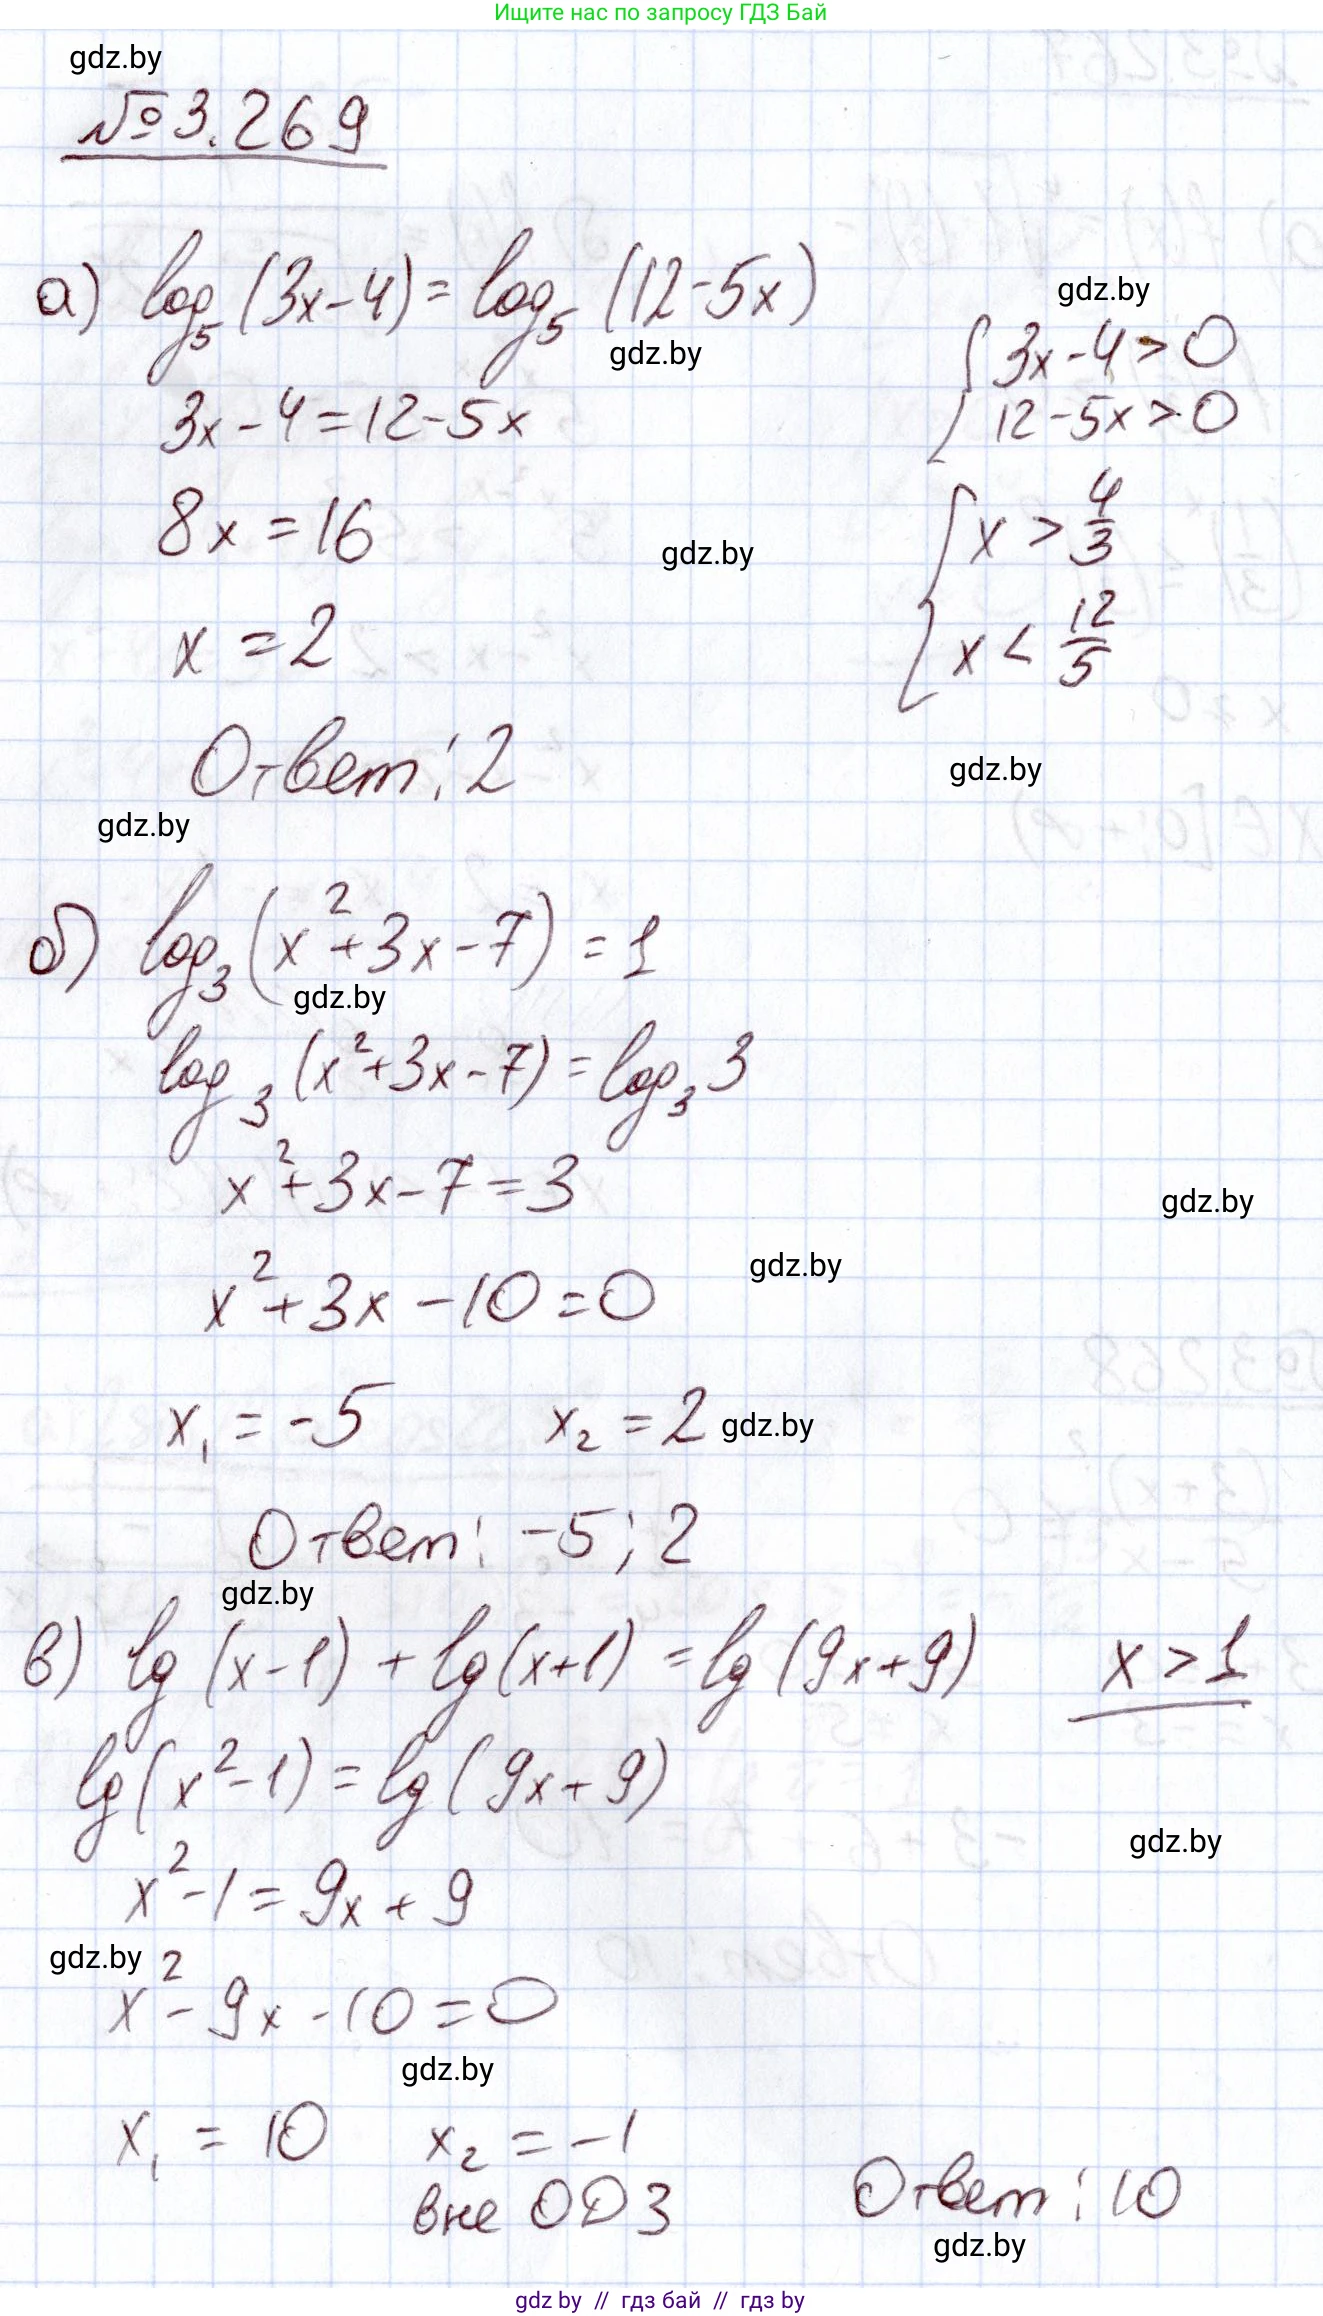 Ищите нас по запросу ГДЗ Бай
gdz.by
№3.269
а) log₅(3x-4)=log₅(12-5x)
gdz.by
gdz.by
{3x-4>0
3x-4=12-5x
{12-5x>0
8x=16
gdz.by
{x>4/3
x=2
{x<12/5
Ответ: 2
gdz.by
gdz.by
б) log₃(x²+3x-7)=1
gdz.by
log₃(x²+3x-7)=log₃3
x²+3x-7=3
gdz.by
gdz.by
x²+3x-10=0
x₁=-5 x₂=2 gdz.by
Ответ: -5; 2
gdz.by
в) lg(x-1)+lg(x+1)=lg(9x+9) x>1
lg(x²-1)=lg(9x+9)
gdz.by
x²-1=9x+9
gdz.by
x²-9x-10=0
gdz.by
x₁=10 x₂=-1
вне ОДЗ Ответ: 10
gdz.by
gdz by // гдз бай // гдз by